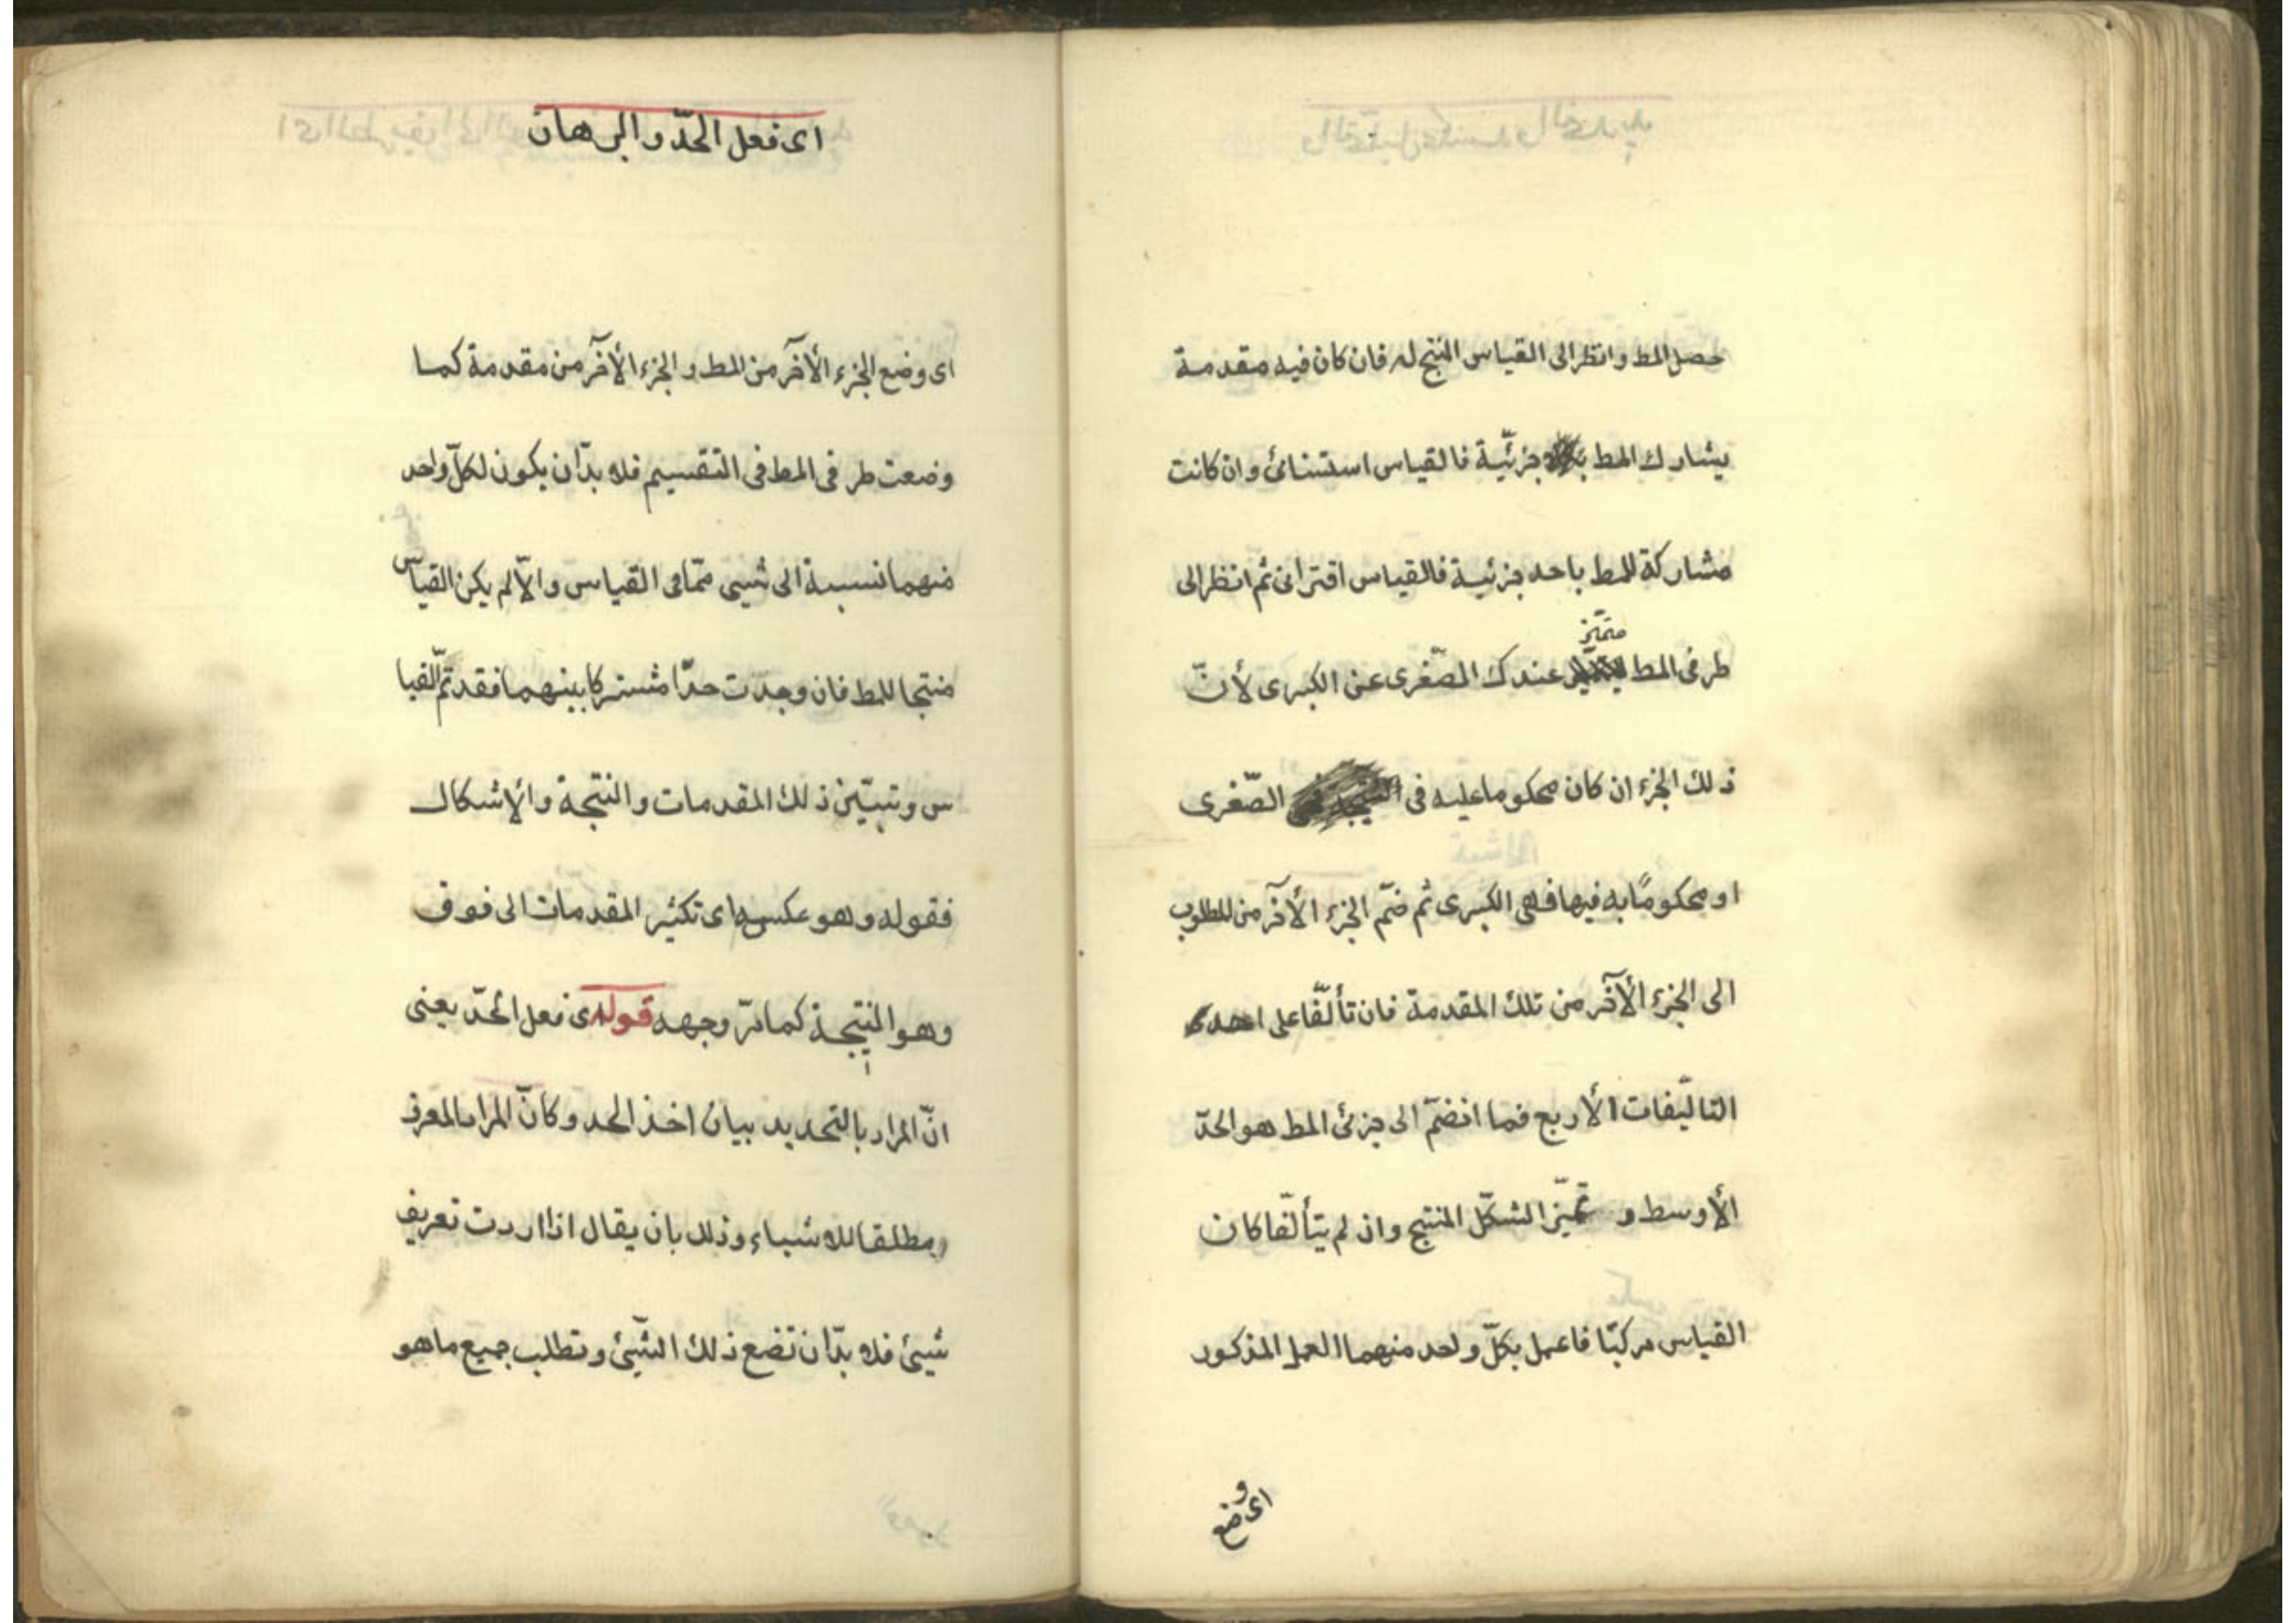 حصل المط وانظر الى القياس المنتج له فان كان فيه مقدمة
يشارك المط جزئيّة فالقياس استثنائى وان كانت
مشاركة للمط باحد جزئية فالقياس اقترانى ثم انظر الى
متميّز
طرفى المط عندك الصّغرى عن الكبرى لأنّ
ذلك الجزء ان كان محكوما عليه فى الصّغرى
او محكومًا به فيها فهى الكبرى ثم ضمّ الجزء الأخر من المطلوب
الى الجزء الأخر من تلك المقدمة فان تألّفا على احدى
التاليّفات الأربع فما انضمّ الى جزئى المط هو الحدّ
الأوسط و تميّز الشكل المنتج وان لم يتألّفا كان
القياس مركبّا فاعمل بكلّ واحد منهما العمل المذكور
اى وضع
اى فعل الحدّ والبرهان
اى وضع الجزء الأخر من المط و الجزء الأخر من مقدمة كما
وضعت طرفى المط فى التقسيم فلا بدّ ان يكون لكلّ واحد
منهما نسبة الى شيى ممّا فى القياس والّا لم يكن القياس
منتجا للمط فان وجدّت حدّا مشتركا بينهما فقد تمّ القيا
س وتبيّن ذلك المقدمات والنتجة والاشكال
فقوله وهو عكسه اى تكثير المقدمات الى فوق
وهو النتيجة كما مرّ وجهه قوله اى فعل الحدّ يعنى
انّ المراد بالتحديد بيان اخذ الحد وكانّ المراد المعرف
مطلقا للاشياء وذلك بان يقال اذا اردت تعريف
شيئ فلا بدّ ان تضع ذلك الشّيئ وتطلب جميع ما هو